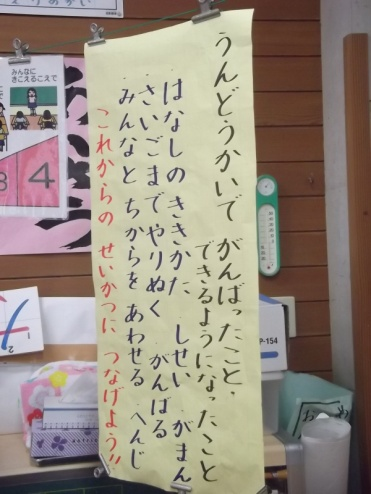 うんどうかいで がんばったこと、
できるようになったこと
・はなしのききかた しせい がまん
・さいごまでやりぬく がんばる
・みんなと ちからを あわせる へんじ
これからの せいかつに つなげよう!!
みんなに
きこえるこえで
3
4
2
1
P-154